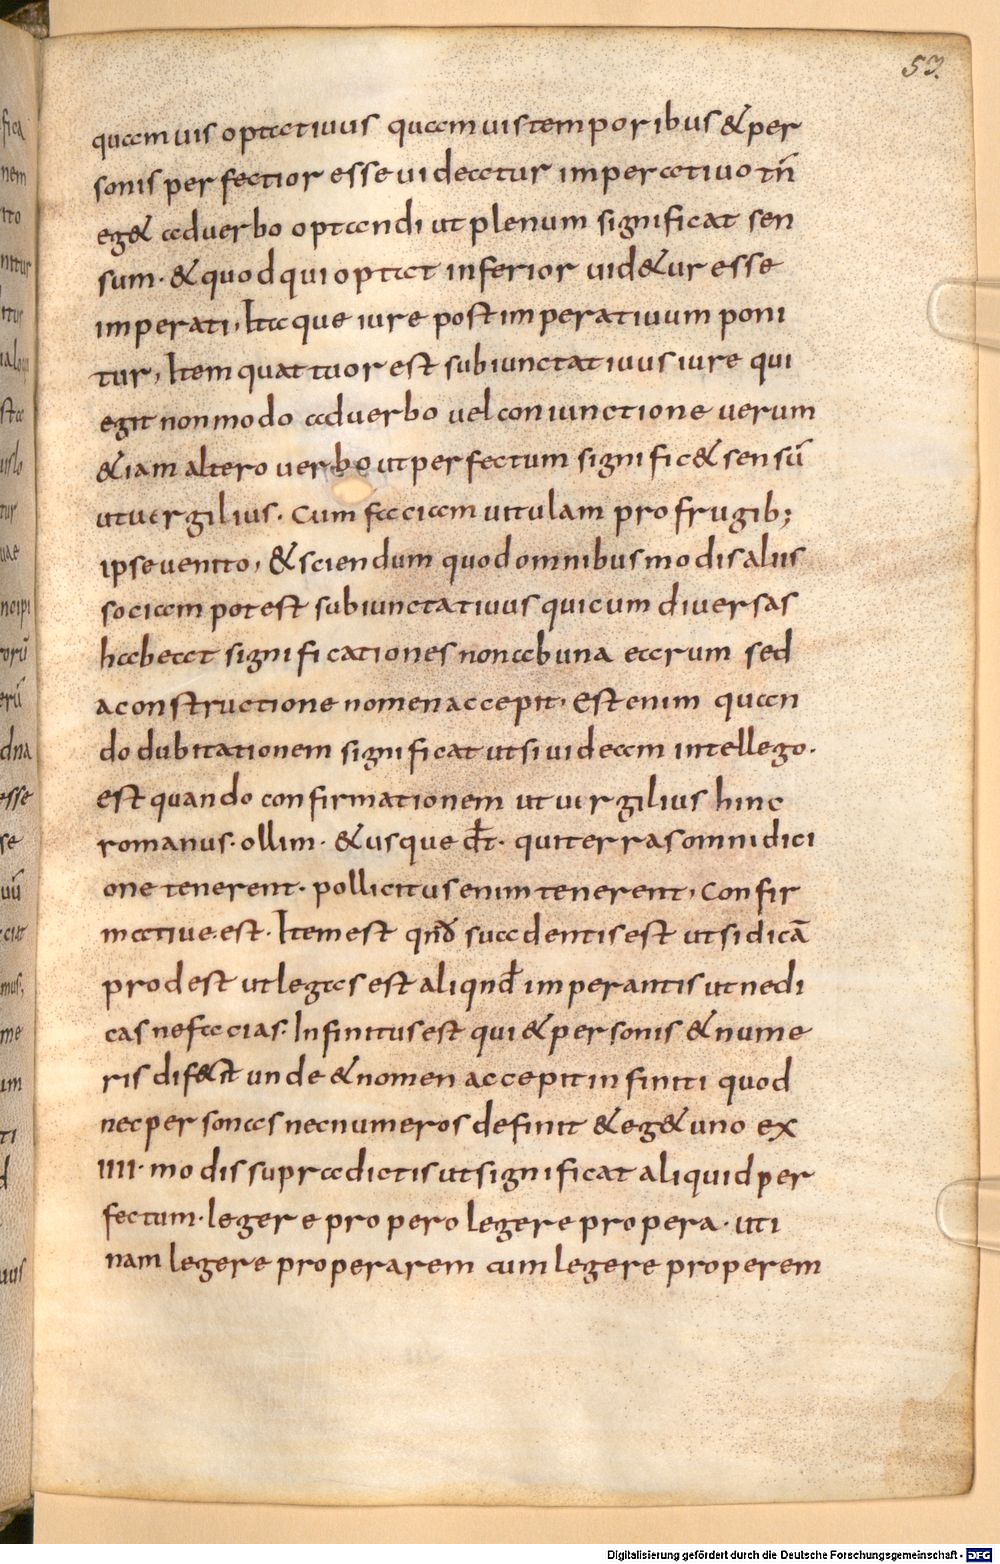 53.
quamuis optatiuus quamuis temporibus & per
sonis perfectior esse uideatur imperatiuo tn̄
eg& aduerbo optandi ut plenum significat sen
sum · & quod qui optat inferior uid&ur esse
imperati, Itaque iure post imperatiuum poni
tur, Item quattuor est subiunctatiuus iure qui
egit non modo aduerbo uel coniunctione uerum
&iam altero uerbo ut perfectum signific& sensū
ut uergilius. Cum faciam uitulam pro frugib;
ipse uenito, & sciendum quod omnibus modis aliis
sociam potest subiunctatiuus qui cum diuersas
habeat significationes non ab una earum sed
a constructione nomen accepit, est enim quan
do dubitationem significat ut si uideam intellego.
est quando confirmationem ut uirgilius hinc
romanus. ollim. & usque dt̄. qui terras omni dici
one tenerent. pollicitus enim tenerent, confir
matiue. est. Item est qn̄đ suadentis est ut si dicā
prodest ut legas est aliqnđ imperantis ut ne di
cas ne facias. Infinitus est qui & personis & nume
ris dif&it unde & nomen accepit infiniti quod
nec personas nec numeros definit & eg& uno ex
IIII. modis supradictis ut significat aliquid per
fectum. legere propero legere propera. uti
nam legere properarem cum legere properem
Digitalisierung gefördert durch die Deutsche Forschungsgemeinschaft - DFG